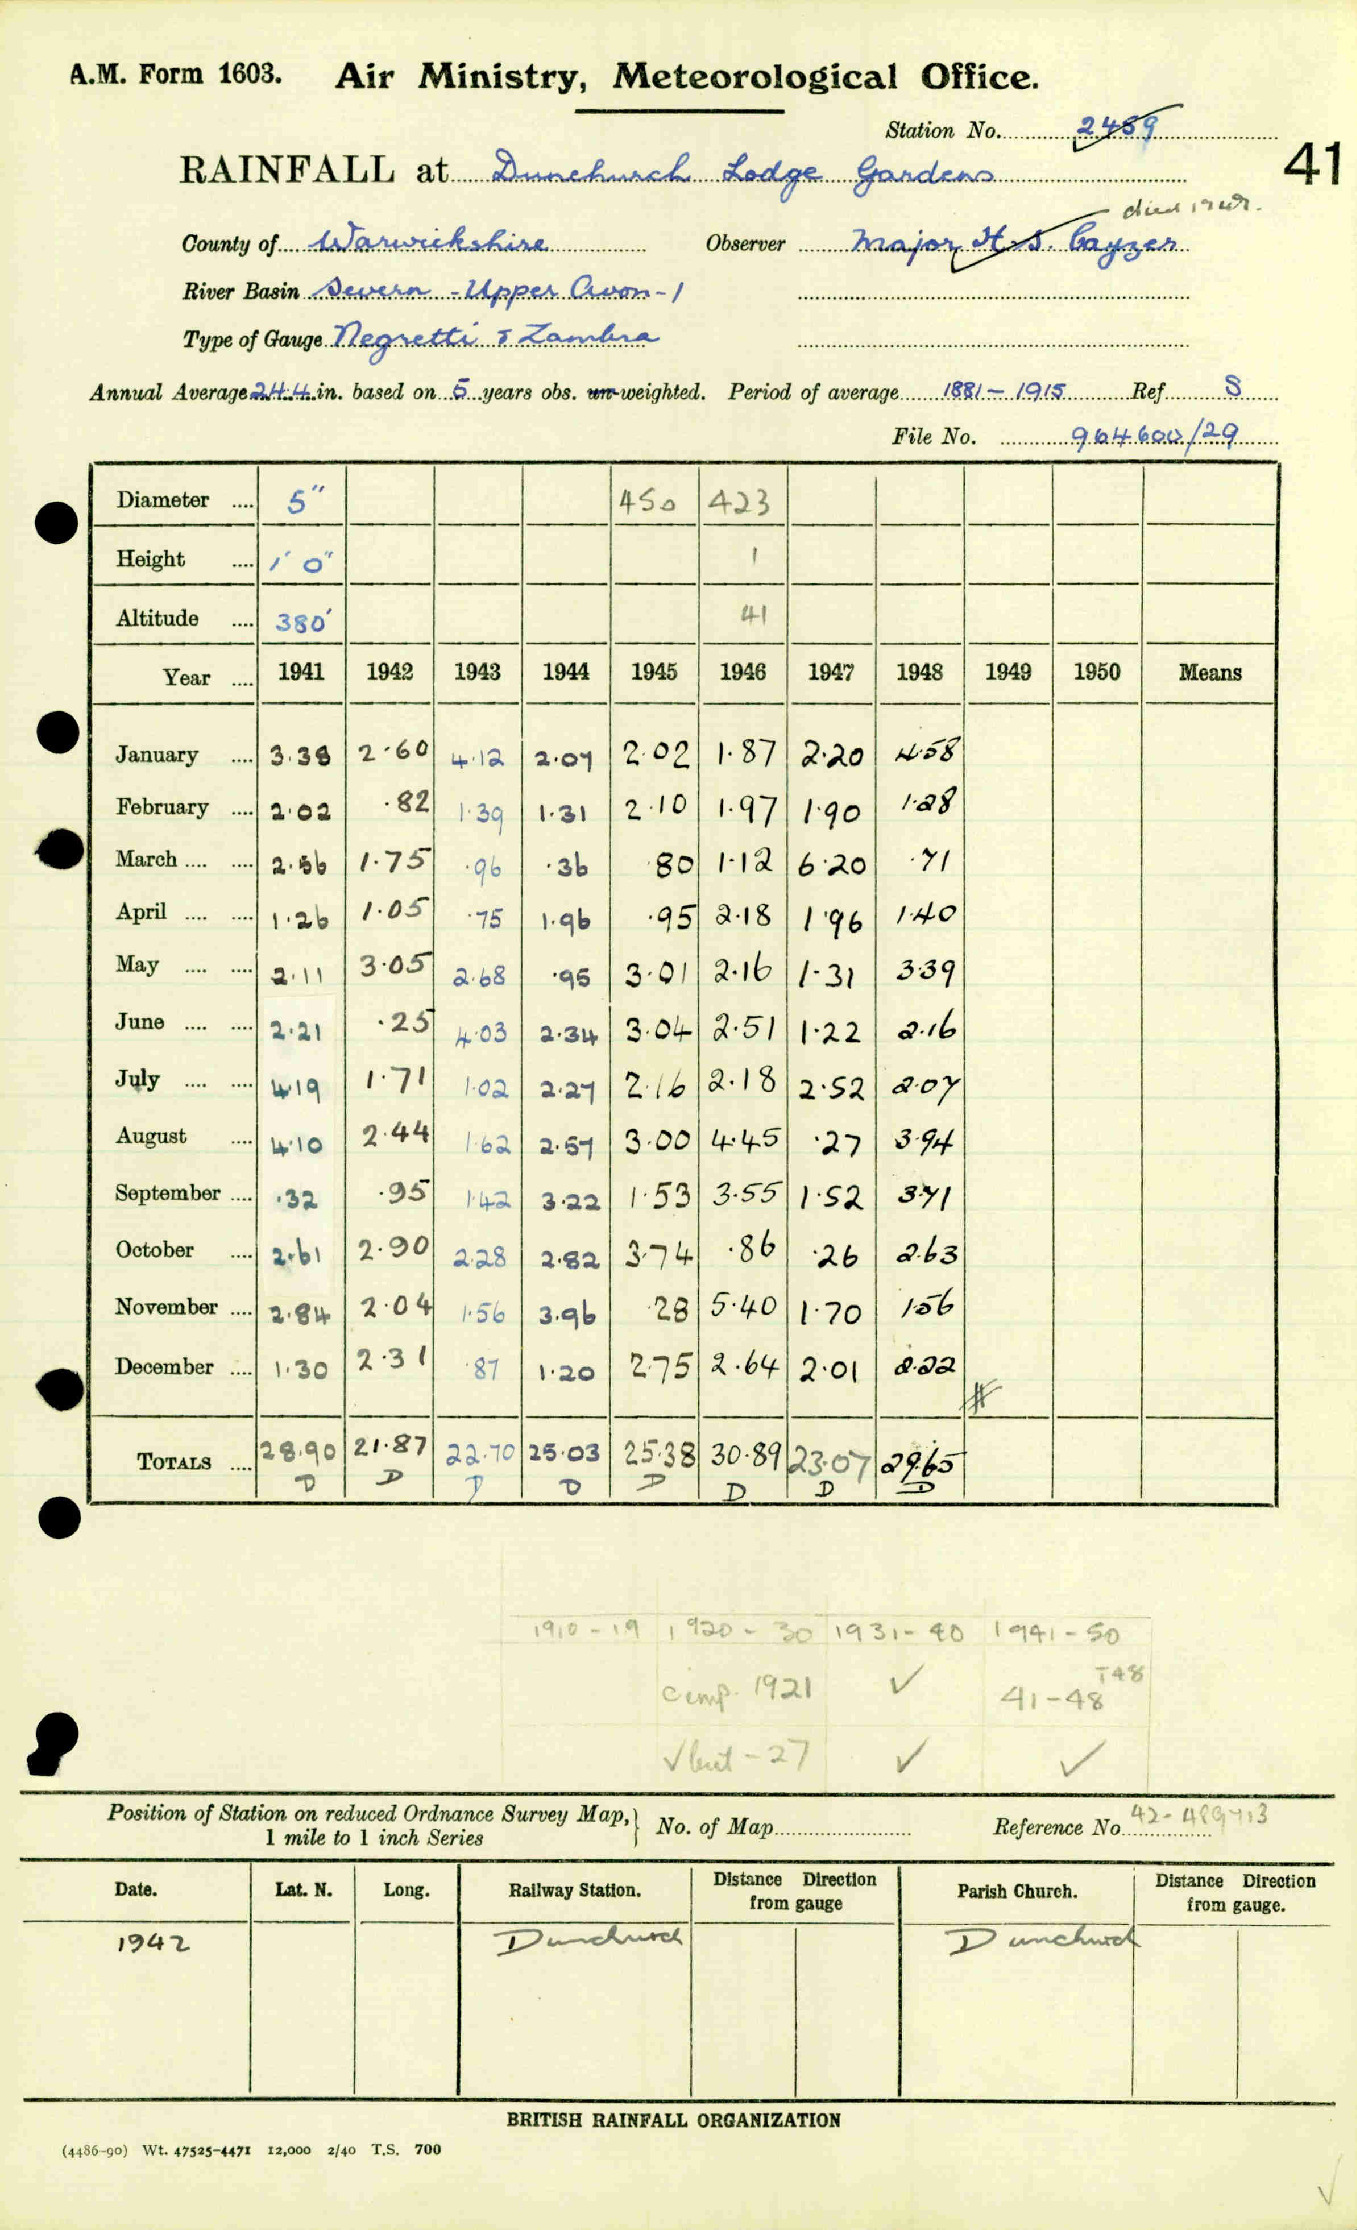 A.M. Form 1603. Air Ministry, Meteorological Office.
Station No. 2489
41
RAINFALL at Dunchurch Lodge Gardens
died
County of Warwickshire Observer Major H. S. Cayzer
River Basin Severn - Upper Avon - 1
Type of Gauge Negretti & Zambra
Annual Average 24.4 in. based on 5 years obs. un-weighted. Period of average 1881 - 1915 Ref S
File No. 964600/29
Diameter .... 5" 450 423
Height .... 1' 0" 1
Altitude .... 380' 41
Year .... 1941 1942 1943 1944 1945 1946 1947 1948 1949 1950 Means
January .... 3.38 2.60 4.12 2.07 2.02 1.87 2.20 4.58
February .... 2.02 .82 1.39 1.31 2.10 1.97 1.90 1.28
March .... .... 2.56 1.75 .96 .36 .80 1.12 6.20 .71
April .... .... 1.26 1.05 .75 1.96 .95 2.18 1.96 1.40
May .... .... 2.11 3.05 2.68 .95 3.01 2.16 1.31 3.39
June .... .... 2.21 .25 4.03 2.34 3.04 2.51 1.22 2.16
July .... .... 4.19 1.71 1.02 2.27 2.16 2.18 2.52 2.07
August .... 4.10 2.44 1.62 2.57 3.00 4.45 .27 3.94
September .... .32 .95 1.42 3.22 1.53 3.55 1.52 3.71
October .... 2.61 2.90 2.28 2.82 3.74 .86 .26 2.63
November .... 2.84 2.04 1.56 3.96 .28 5.40 1.70 1.56
December .... 1.30 2.31 .87 1.20 2.75 2.64 2.01 2.22
TOTALS .... 28.90 21.87 22.70 25.03 25.38 30.89 23.07 29.65
D D D D D D D D
1910-19 1920-30 1931-40 1941-50
comp. 1921 ✓ 41-48 T48
✓ but -27 ✓ ✓
Position of Station on reduced Ordnance Survey Map,
1 mile to 1 inch Series
No. of Map Reference No. 42-
Date. Lat. N. Long. Railway Station. Distance Direction from gauge Parish Church. Distance Direction from gauge.
1942 Dunchurch Dunchurch
BRITISH RAINFALL ORGANIZATION
(4486-90) Wt. 47525-4471 12,000 2/40 T.S. 700